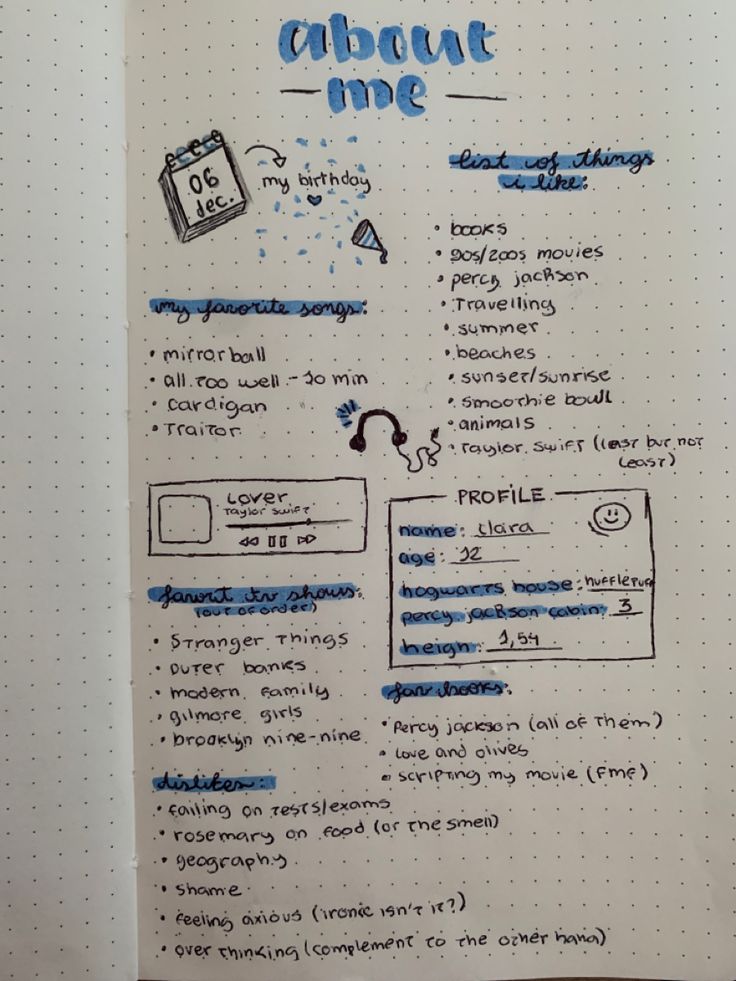 about
me
06
dec.
my birthday
list of things
i like:
• books
• 90s/200s movies
• percy jackson
• Travelling
• summer
• beaches
• sunset/sunrise
• smoothie bowl
• animals
• Taylor Swift (last but not
least)
my favorite songs:
• mirrorball
• all too well - 10 min
• cardigan
• Traitor
Lover
Taylor Swift
PROFILE
name: clara
age: 12
hogwarts house: hufflepuff
percy jackson cabin: 3
heigh: 1,54
favorit tv shows:
(out of order)
• Stranger Things
• outer banks
• modern family
• gilmore girls
• brooklyn nine-nine
fav books:
• Percy jackson (all of them)
• Love and olives
• scripting my movie (FMF)
dislikes:
• failing on tests/exams
• rosemary on food (or the smell)
• geography
• shame
• feeling axious (ironic isn't it?)
• over thinking (complement to the other hand)